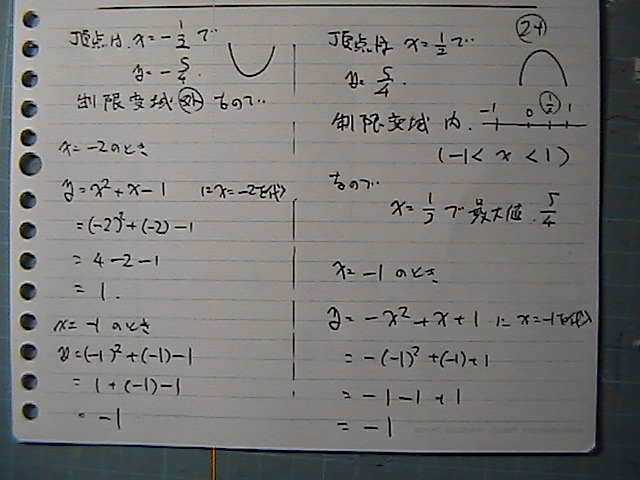 頂点は、x=-1/2で
y=-5/4.
制限変域外なので..
x=-2のとき
y=x²+x-1 にx=-2を代入
=(-2)²+(-2)-1
=4-2-1
=1.
x=-1のとき
y=(-1)²+(-1)-1
=1+(-1)-1
=-1
24
頂点は x=1/2で
y=5/4.
制限変域内.
-1 0 1/2 1
(-1<x<1)
なので..
x=1/2で最大値.5/4
x=-1のとき
y=-x²+x+1にx=-1を代入
=-(-1)²+(-1)+1
=-1-1+1
=-1